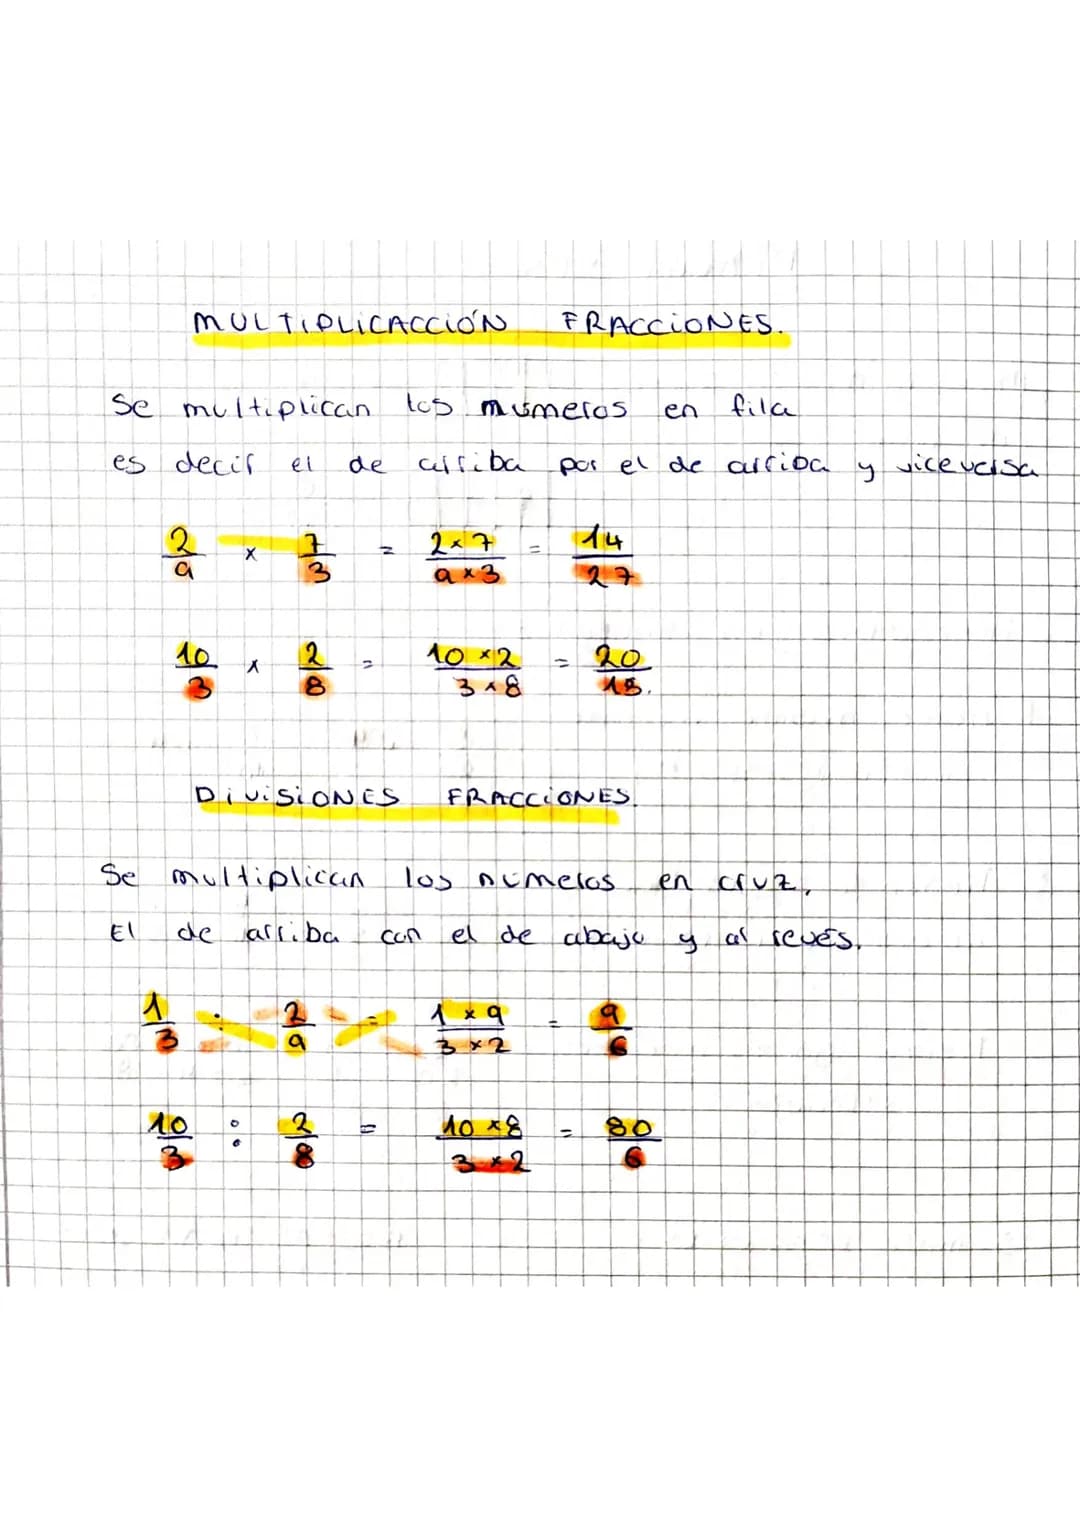 MULTIPLICACCIÓN FRACCIONES.
Se multiplican los números en fila
es decir el de arriba por el de arriba y viceversa
2/9 x 7/3 = 2x7/9x3 = 14/27
10/3 x 2/8 = 10x2/3x8 = 20/18.
DIVISIONES FRACCIONES.
Se multiplican los números en cruz,
El de arriba con el de abajo y al revés.
1/3 : 2/9 = 1x9/3x2 = 9/6
10/3 : 2/8 = 10x8/3x2 = 80/6